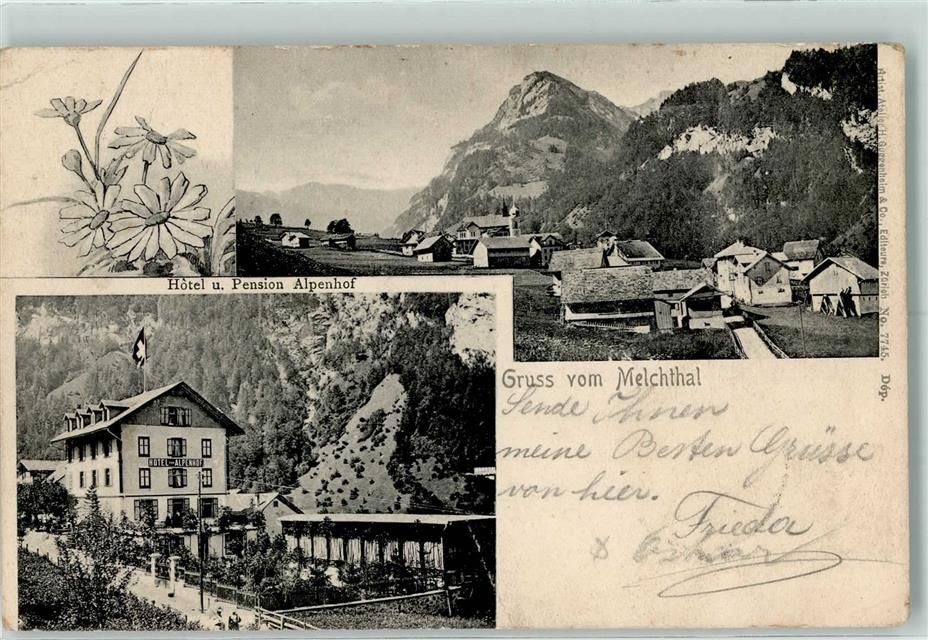 Hôtel u. Pension Alpenhof
HOTEL ALPENHOF
Gruss vom Melchthal
Sende Ihnen
meine Besten Grüsse
von hier.
Frieda
Oskar
Artist. Atelier H. Guggenheim & Co., Editeurs, Zürich No. 7745. Dép.